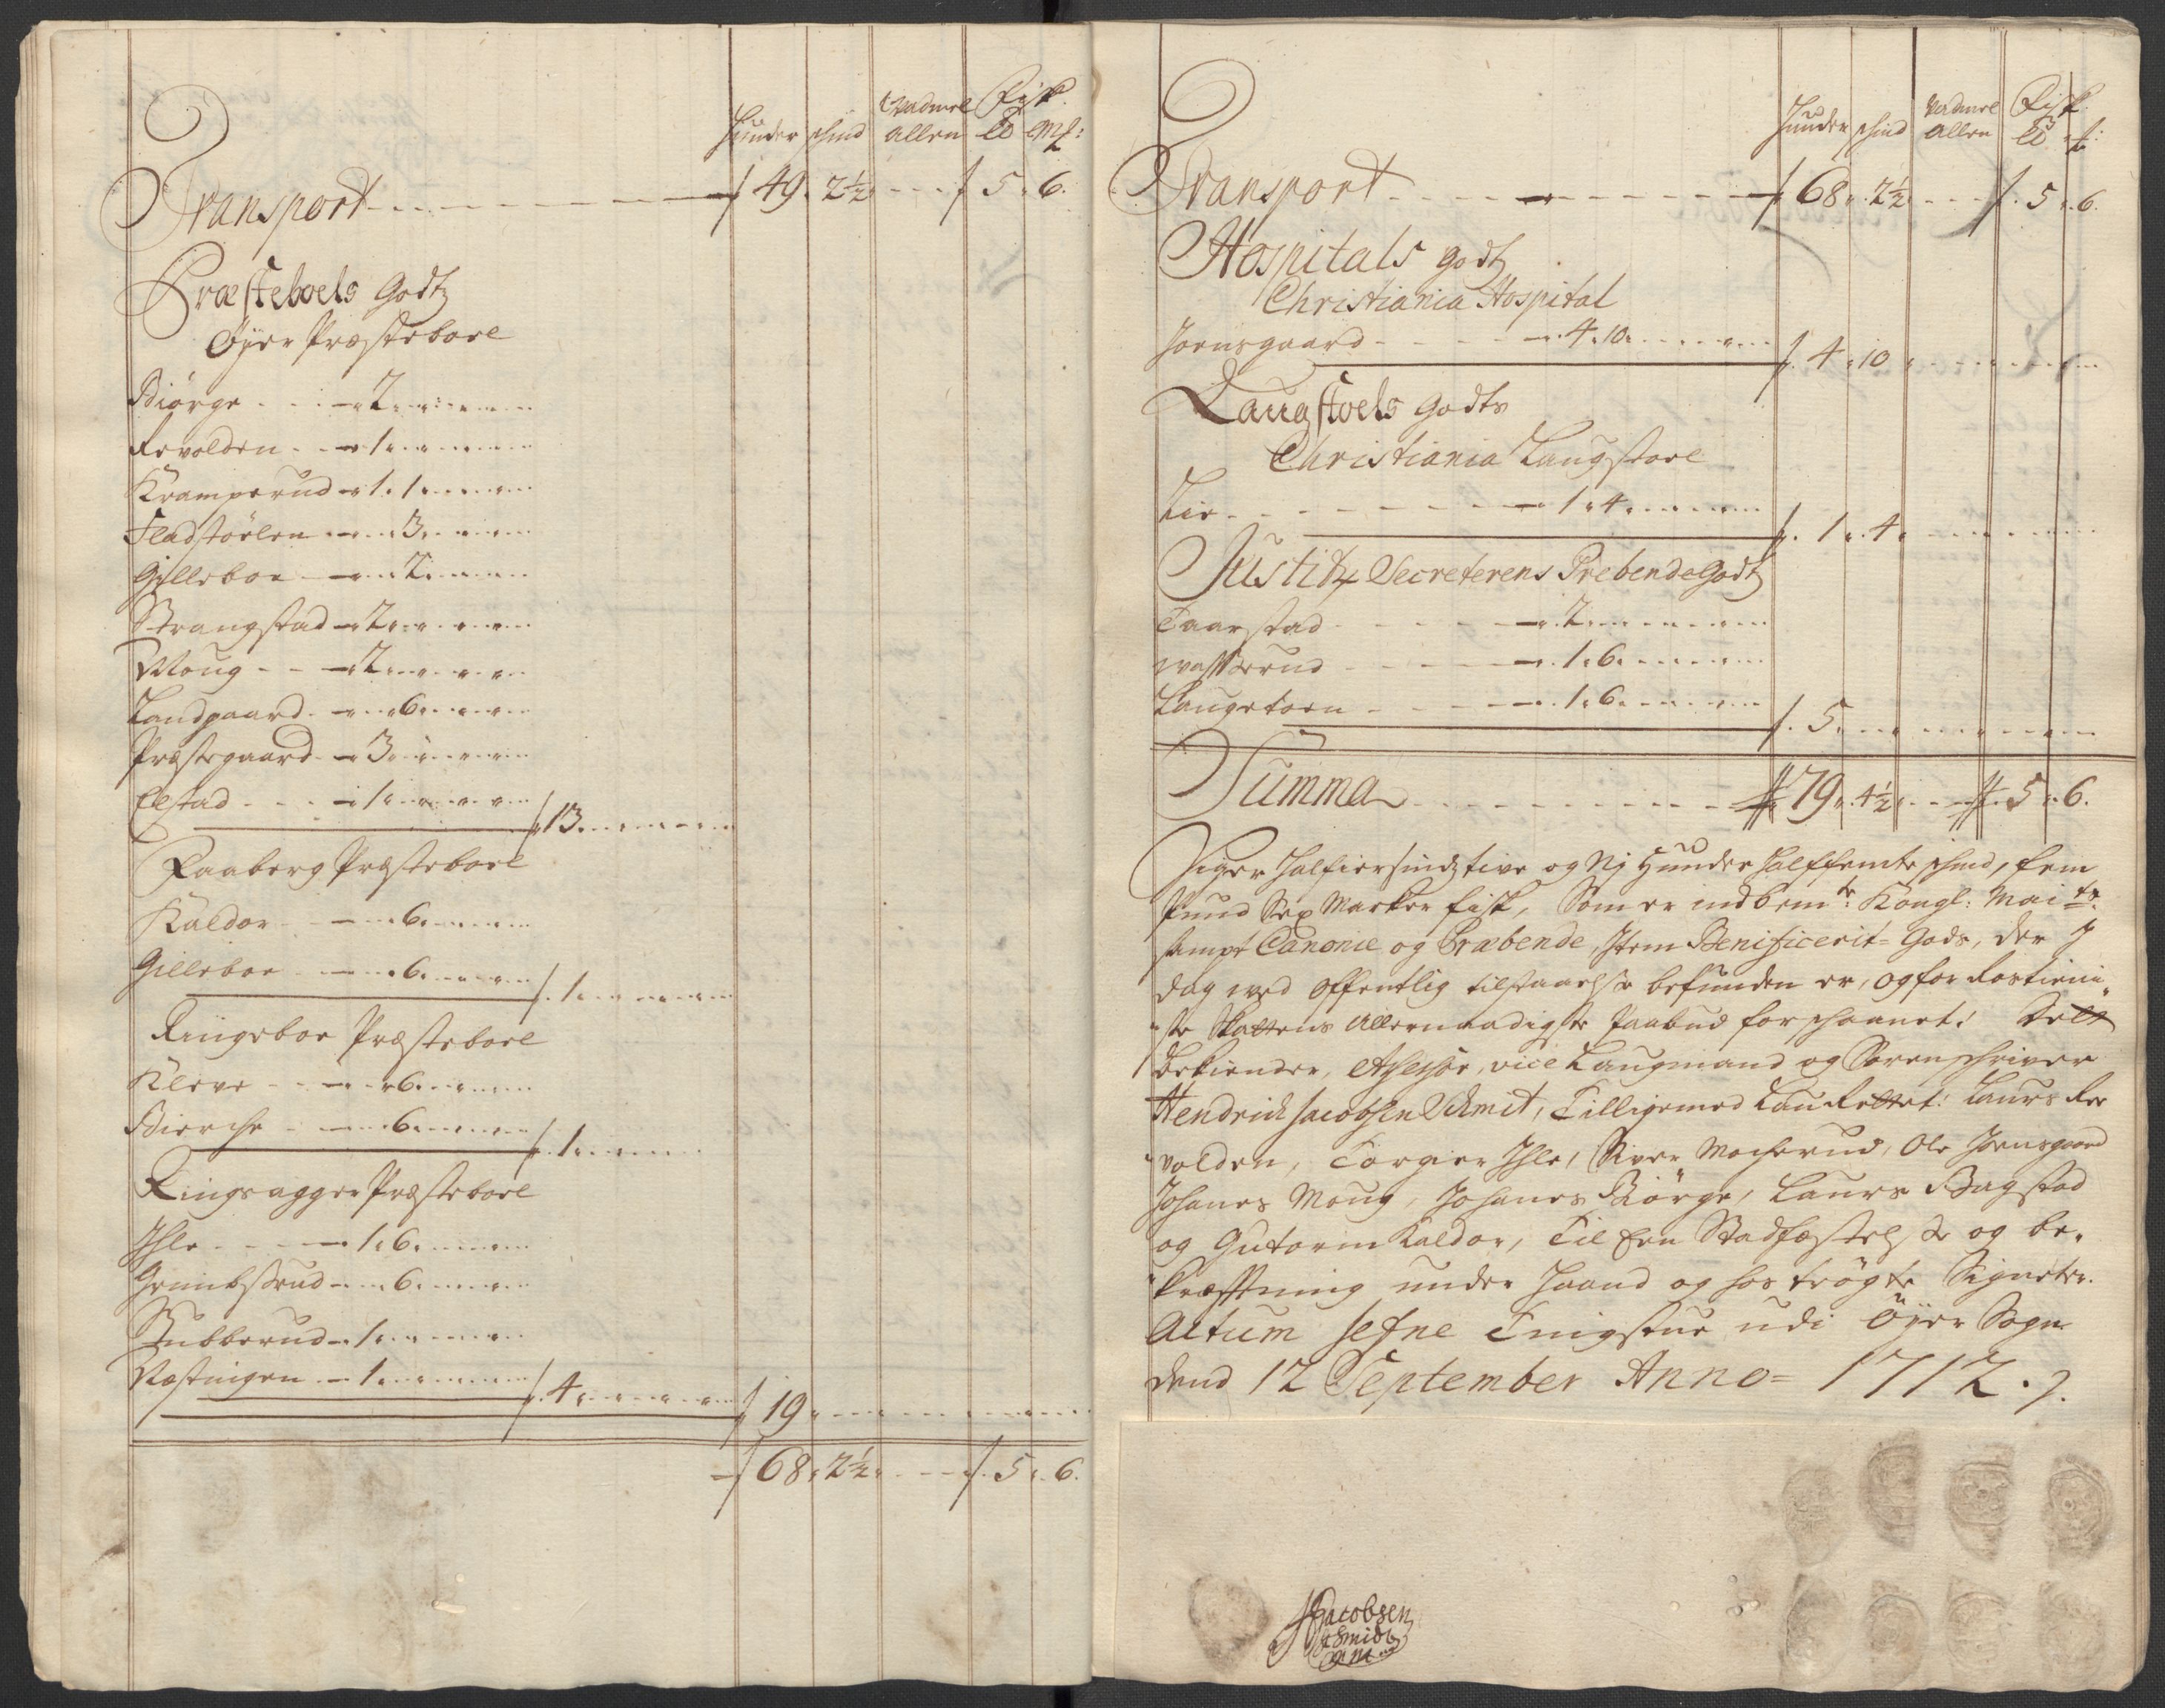 Hunder schind Wadmel Allen Fisk ℔ Mk:
Transport 49. 2½ 5. 6.
Præsteboels Godtz
Öyer Præsteboel
Biörge 2.
Revolden 1.
Kramperud 1. 1
Fladstöelen 3.
Gilleboe 2.
Strangstad 2.
Moug 2.
Landgaard 6.
Præstegaard 3.
Elstad 1
13.
Faaberg Præsteboel
Kaldor 6.
Gilleboe 6.
1.
Ringeboe Præsteboel
Kleve 6.
Biercke 6.
1.
Ringsagger Præsteboel
Ihle 1. 6.
Grimbsrud 6.
Skubberud 1.
Næstingen 1.
4.
19.
68. 2½. 5. 6.
Hunder schind Vadmel Allen Fisk ℔
Transport 68. 2½ 5. 6.
Hospitals godtz
Christiania Hospital
Joensgaard 4. 10.
4. 10
Laugstoels Godts
Christiania Laugstoel
Lie 1. 4.
1. 4.
Justitz Secreterens Prebende Godtz
Taarstad 2.
1. 6.
Laugetoen 1. 6.
5.
Summa 79. 4½ 5. 6.
Siger Halfiersindztive og Nj Hunder Halffemte schind, fem
Pund Sex Marker fisk, Som er indbem:te Kongl: Mai:ts
sampt Canonie og Præbende, Item Benificerit= Gods, der J
dag ved offentlig tilstaaelse befunden er, og for Rostieni-
ste Skattens Allernaadigste Paabud forschaanet! Dett
bekiender, Assessor, vice Laugmand og Sorenschriver
Hendrich Jacobsen Schmit, Tilligemed LauRettet! Laurs Re
volden, Torgier Ihle, Siver Mocherud, Ole Joensgaard
Johanes Moug, Johanes Biörge, Laurs Bagstad
og Gutorm Kaldor, Til Een Stadfæstelse og be-
kræfftning under Haand og hos trögte Signeter.
Actum Tingstue udi Öyer Sogn
dend 12 September Anno= 1712.
HJacobsen
Schmidt